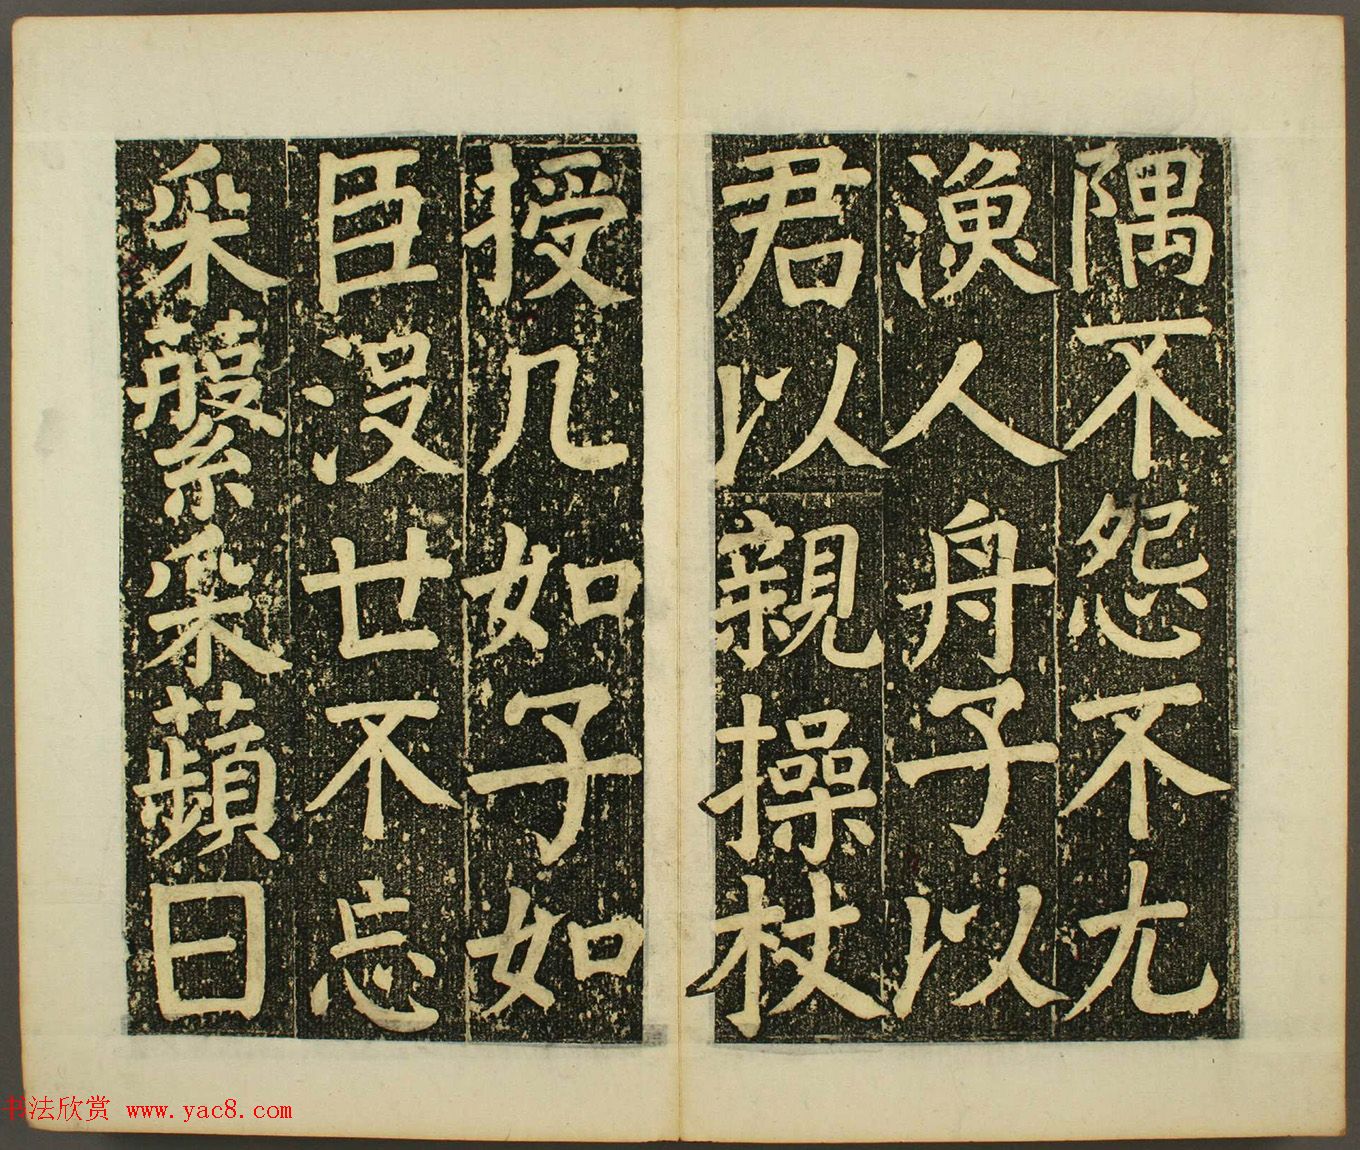 隅不怨不尤
漁人舟子以
君以親操杖
授几如子如
臣沒廿不忘
采蘩采蘋曰
书法欣赏 www.yac8.com